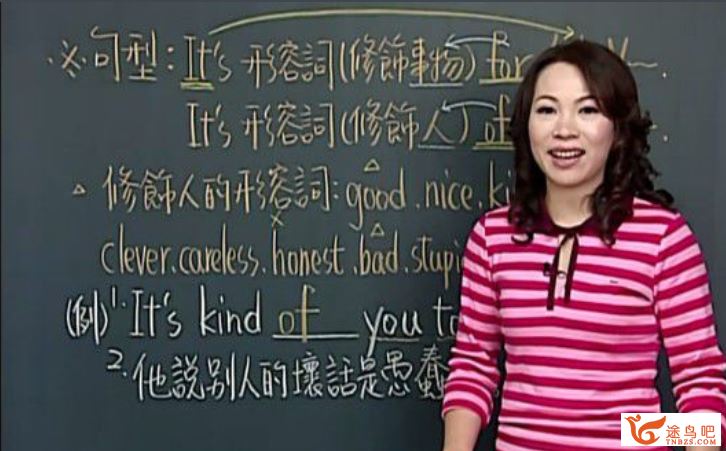 ※句型：It's 形容詞(修飾事物) for
It's 形容詞(修飾人) of
△修飾人的形容詞：good . nice .
clever . careless . honest . bad .
(例) 1. It's kind of you
2. 他說別人的壞話是愚蠢
途鸟吧
TNBZS.COM